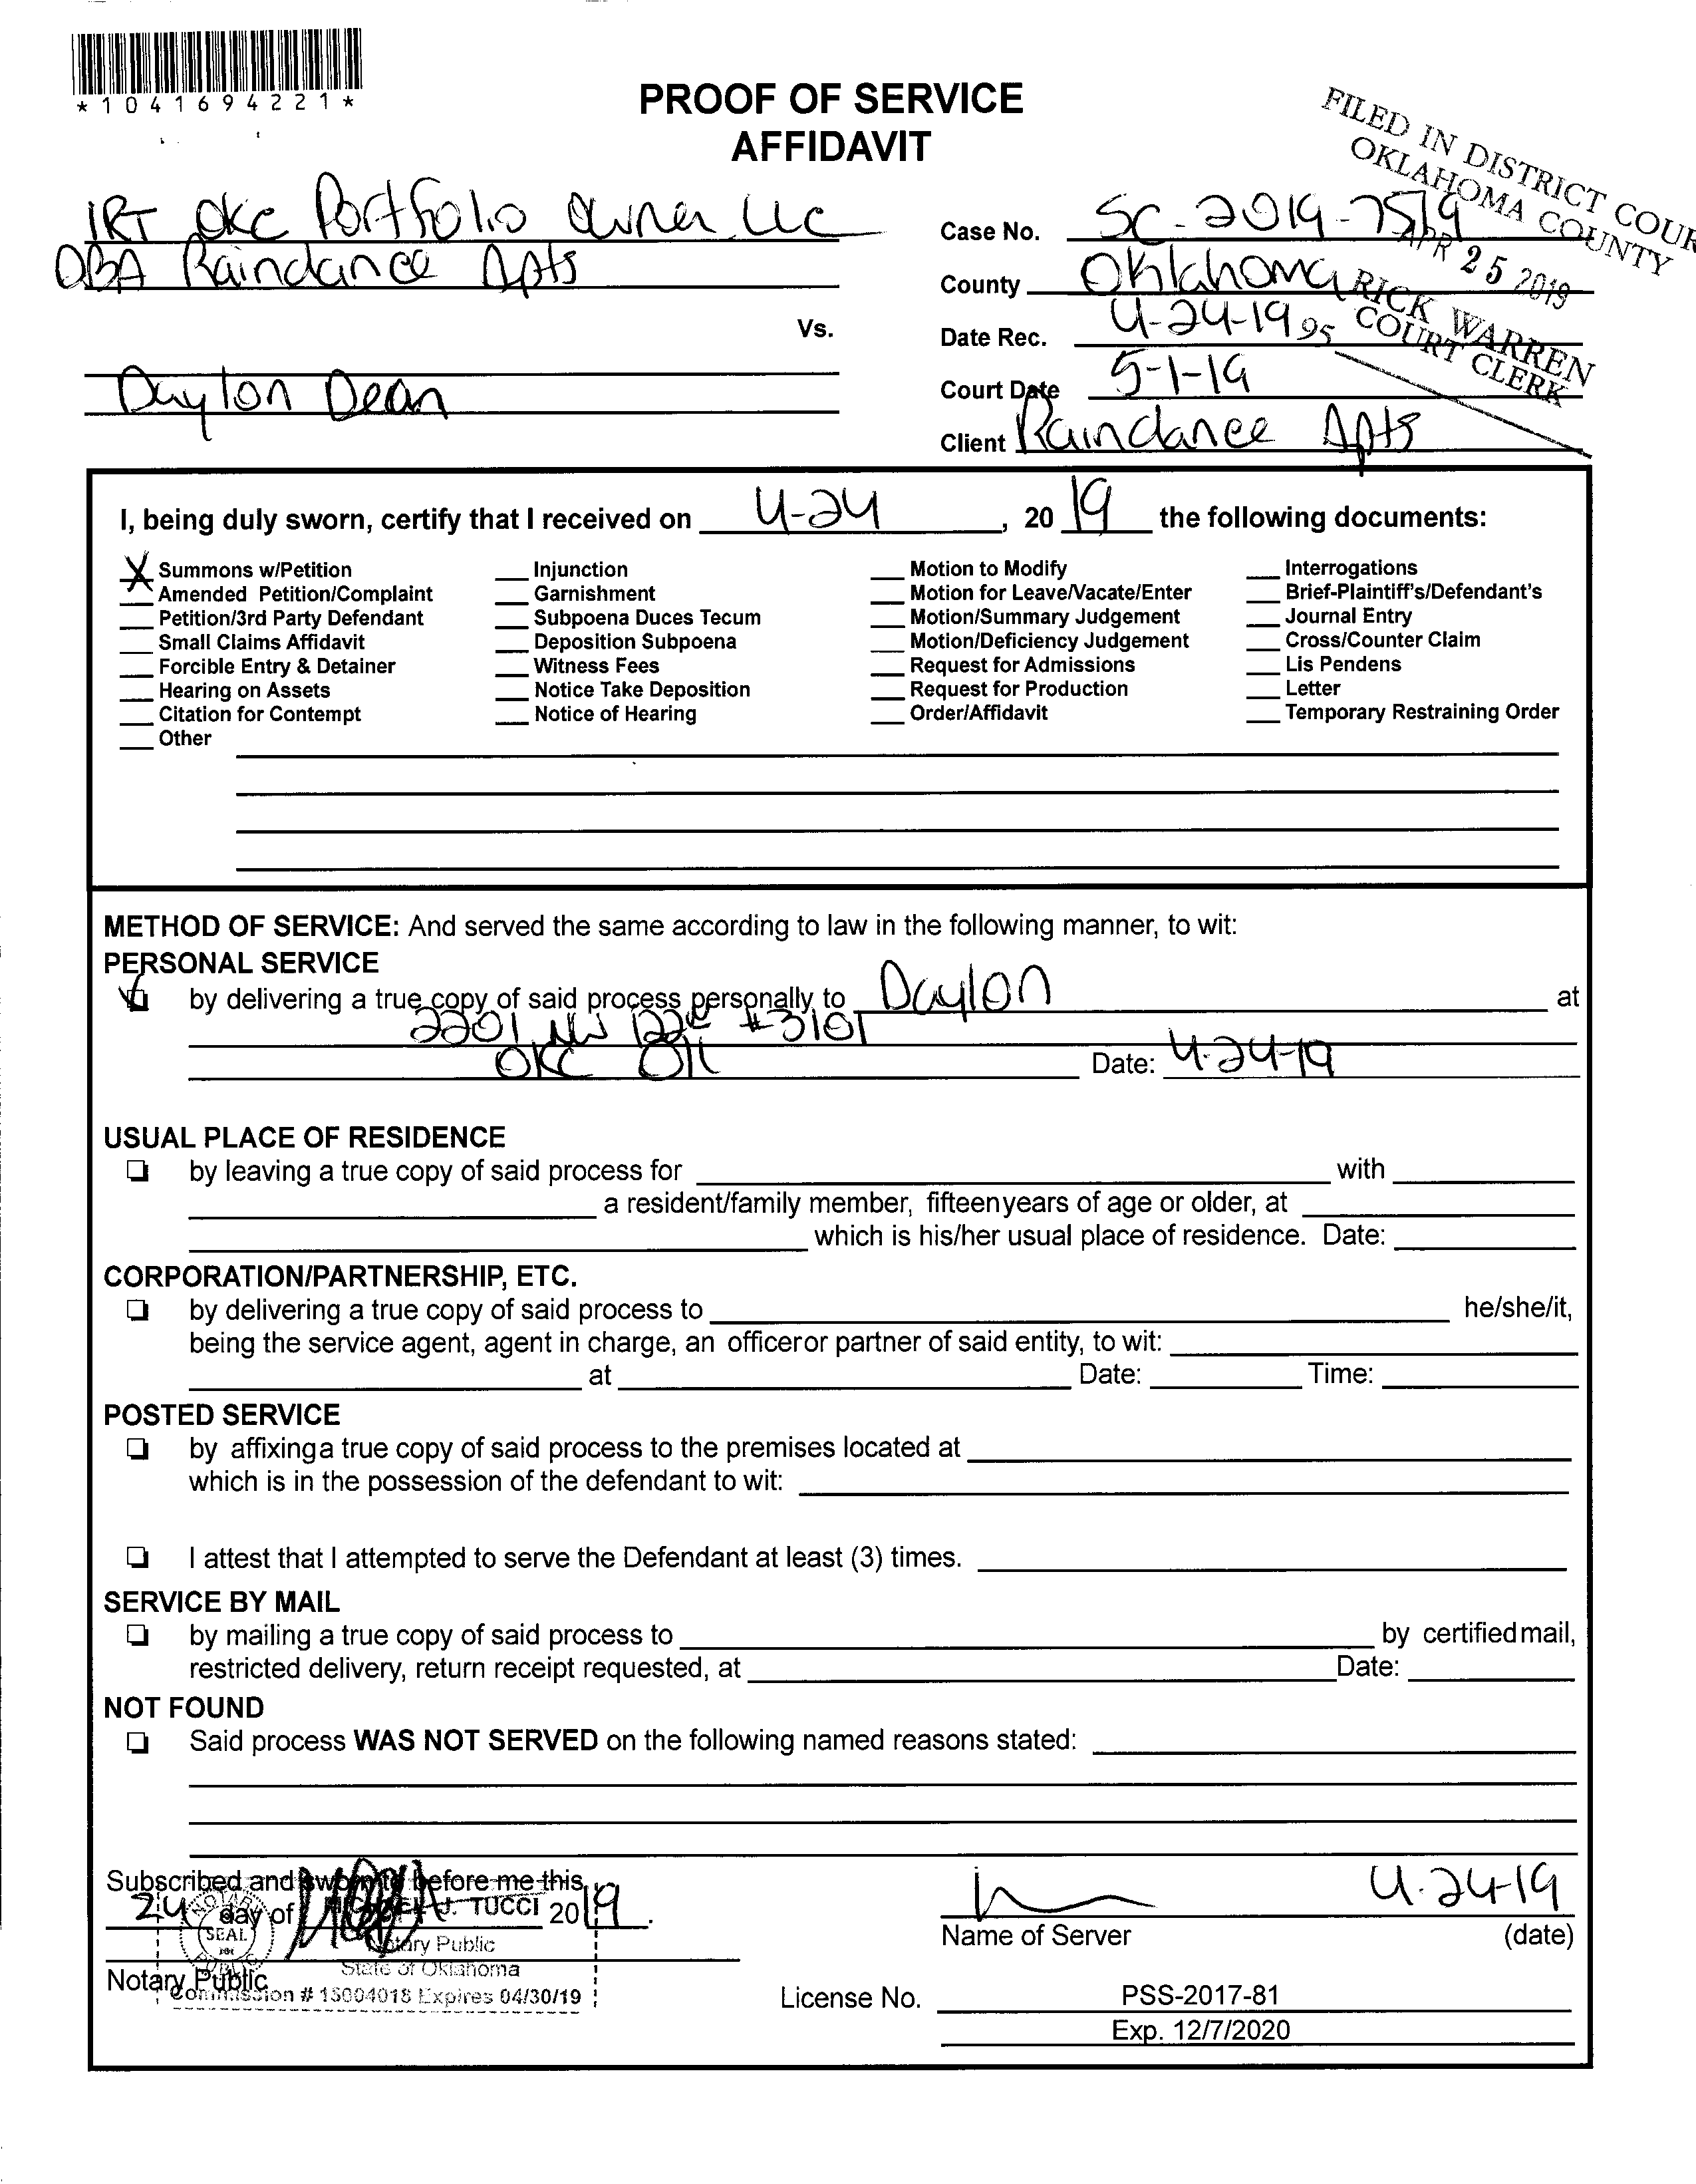 *1041694221*
PROOF OF SERVICE
AFFIDAVIT
FILED IN DISTRICT COUR
OKLAHOMA COUNTY
APR 25 2019
RICK WARREN
COURT CLERK
95
IRT OKC Portfolio Owner LLC
DBA Raindance Apts
Vs.
Daylon Dean
Case No. SC-2019-7519
County Oklahoma
Date Rec. 4-24-19
Court Date 5-1-19
Client Raindance Apts
I, being duly sworn, certify that I received on 4-24, 20 19 the following documents:
X Summons w/Petition
Amended Petition/Complaint
Petition/3rd Party Defendant
Small Claims Affidavit
Forcible Entry & Detainer
Hearing on Assets
Citation for Contempt
Other
Injunction
Garnishment
Subpoena Duces Tecum
Deposition Subpoena
Witness Fees
Notice Take Deposition
Notice of Hearing
Motion to Modify
Motion for Leave/Vacate/Enter
Motion/Summary Judgement
Motion/Deficiency Judgement
Request for Admissions
Request for Production
Order/Affidavit
Interrogations
Brief-Plaintiff's/Defendant's
Journal Entry
Cross/Counter Claim
Lis Pendens
Letter
Temporary Restraining Order
METHOD OF SERVICE: And served the same according to law in the following manner, to wit:
PERSONAL SERVICE
by delivering a true copy of said process personally to Daylon at
2201 NW 122nd #3101
OKC OK Date: 4-24-19
USUAL PLACE OF RESIDENCE
by leaving a true copy of said process for with
a resident/family member, fifteenyears of age or older, at
which is his/her usual place of residence. Date:
CORPORATION/PARTNERSHIP, ETC.
by delivering a true copy of said process to he/she/it,
being the service agent, agent in charge, an officeror partner of said entity, to wit:
at Date: Time:
POSTED SERVICE
by affixinga true copy of said process to the premises located at
which is in the possession of the defendant to wit:
I attest that I attempted to serve the Defendant at least (3) times.
SERVICE BY MAIL
by mailing a true copy of said process to by certified mail,
restricted delivery, return receipt requested, at Date:
NOT FOUND
Said process WAS NOT SERVED on the following named reasons stated:
Subscribed and sworn to before me this
24 day of 2019.
J. TUCCI
NOTARY
SEAL
PUBLIC
Notary Public
State of Oklahoma
Commission # 15004018 Expires 04/30/19
Notary Public
4-24-19
Name of Server (date)
License No. PSS-2017-81
Exp. 12/7/2020